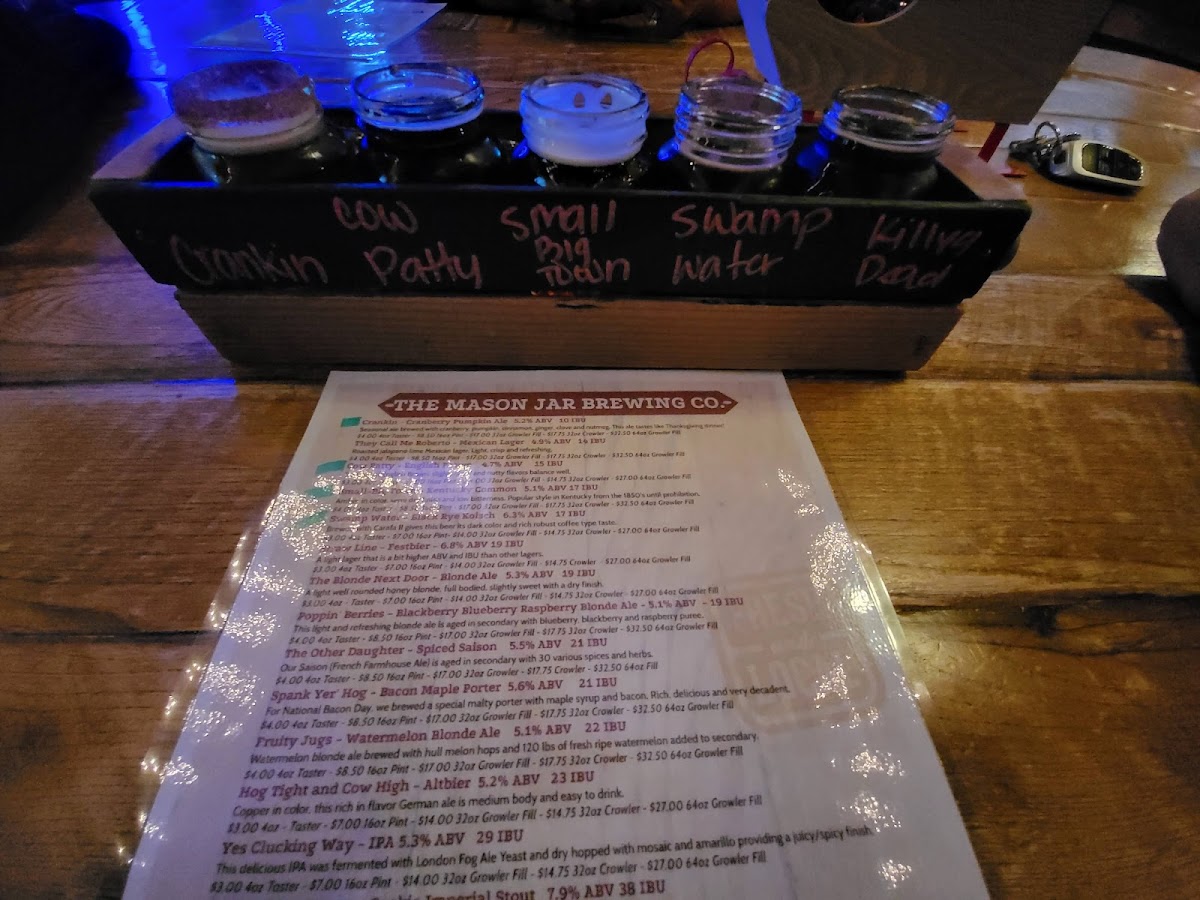 Crankin
Cow
Patty
Small
Big
Town
Swamp
Water
Killya
Dead
-THE MASON JAR BREWING CO.-
Crankin - Cranberry Pumpkin Ale 5.2% ABV 10 IBU
Seasonal ale brewed with cranberry, pumpkin, cinnamon, ginger, clove and nutmeg. This ale tastes like Thanksgiving dinner!
$4.00 4oz Taster - $8.50 16oz Pint - $17.00 32oz Growler Fill - $17.75 32oz Crowler - $32.50 64oz Growler Fill
They Call Me Roberto - Mexican Lager 4.9% ABV 14 IBU
Roasted jalapeno lime Mexican lager. Light, crisp and refreshing.
$4.00 4oz Taster - $8.50 16oz Pint - $17.00 32oz Growler Fill - $17.75 32oz Crowler - $32.50 64oz Growler Fill
Patty - English 4.7% ABV 15 IBU
nutty flavors balance well.
Growler Fill - $14.75 32oz Crowler - $27.00 64oz Growler Fill
Kentucky Common 5.1% ABV 17 IBU
bitterness. Popular style in Kentucky from the 1850's until prohibition.
32oz Growler Fill - $17.75 32oz Crowler - $32.50 64oz Growler Fill
Swamp Water - Black Rye Kolsch 6.3% ABV 17 IBU
Carafa II gives this beer its dark color and rich robust coffee type taste.
$3.00 4oz Taster - $7.00 16oz Pint - $14.00 32oz Growler Fill - $14.75 32oz Crowler - $27.00 64oz Growler Fill
Line - Festbier - 6.8% ABV 19 IBU
A lager that is a bit higher ABV and IBU than other lagers.
$3.00 4oz Taster - $7.00 16oz Pint - $14.00 32oz Growler Fill - $14.75 Crowler - $27.00 64oz Growler Fill
The Blonde Next Door - Blonde Ale 5.3% ABV 19 IBU
A light well rounded honey blonde, full bodied, slightly sweet with a dry finish.
$3.00 4oz Taster - $7.00 16oz Pint - $14.00 32oz Growler Fill - $14.75 32oz Crowler - $27.00 64oz Growler Fill
Poppin' Berries - Blackberry Blueberry Raspberry Blonde Ale - 5.1% ABV - 19 IBU
This light and refreshing blonde ale is aged in secondary with blueberry, blackberry and raspberry puree.
$4.00 4oz Taster - $8.50 16oz Pint - $17.00 32oz Growler Fill - $17.75 32oz Crowler - $32.50 64oz Growler Fill
The Other Daughter - Spiced Saison 5.5% ABV 21 IBU
Our Saison (French Farmhouse Ale) is aged in secondary with 30 various spices and herbs.
$4.00 4oz Taster - $8.50 16oz Pint - $17.00 32oz Growler Fill - $17.75 Crowler - $32.50 64oz Fill
Spank Yer' Hog - Bacon Maple Porter 5.6% ABV 21 IBU
For National Bacon Day, we brewed a special malty porter with maple syrup and bacon. Rich, delicious and very decadent.
$4.00 4oz Taster - $8.50 16oz Pint - $17.00 32oz Growler Fill - $17.75 32oz Crowler - $32.50 64oz Growler Fill
Fruity Jugs - Watermelon Blonde Ale 5.1% ABV 22 IBU
Watermelon blonde ale brewed with hull melon hops and 120 lbs of fresh ripe watermelon added to secondary.
$4.00 4oz Taster - $8.50 16oz Pint - $17.00 32oz Growler Fill - $17.75 32oz Crowler - $32.50 64oz Growler Fill
Hog Tight and Cow High - Altbier 5.2% ABV 23 IBU
Copper in color, this rich in flavor German ale is medium body and easy to drink.
$3.00 4oz - Taster - $7.00 16oz Pint - $14.00 32oz Growler Fill - $14.75 32oz Crowler - $27.00 64oz Growler Fill
Yes Clucking Way - IPA 5.3% ABV 29 IBU
This delicious IPA was fermented with London Fog Ale Yeast and dry hopped with mosaic and amarillo providing a juicy/spicy finish.
$3.00 4oz Taster - $7.00 16oz Pint - $14.00 32oz Growler Fill - $14.75 32oz Crowler - $27.00 64oz Growler Fill
Imperial Stout 7.9% ABV 38 IBU